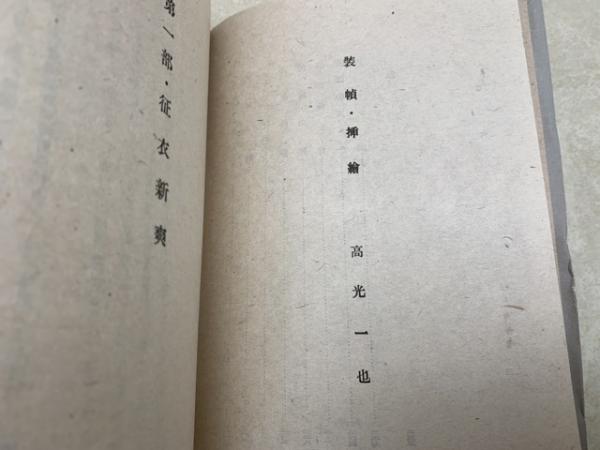 装幀・挿繪 高光一也
第一部・征衣新爽